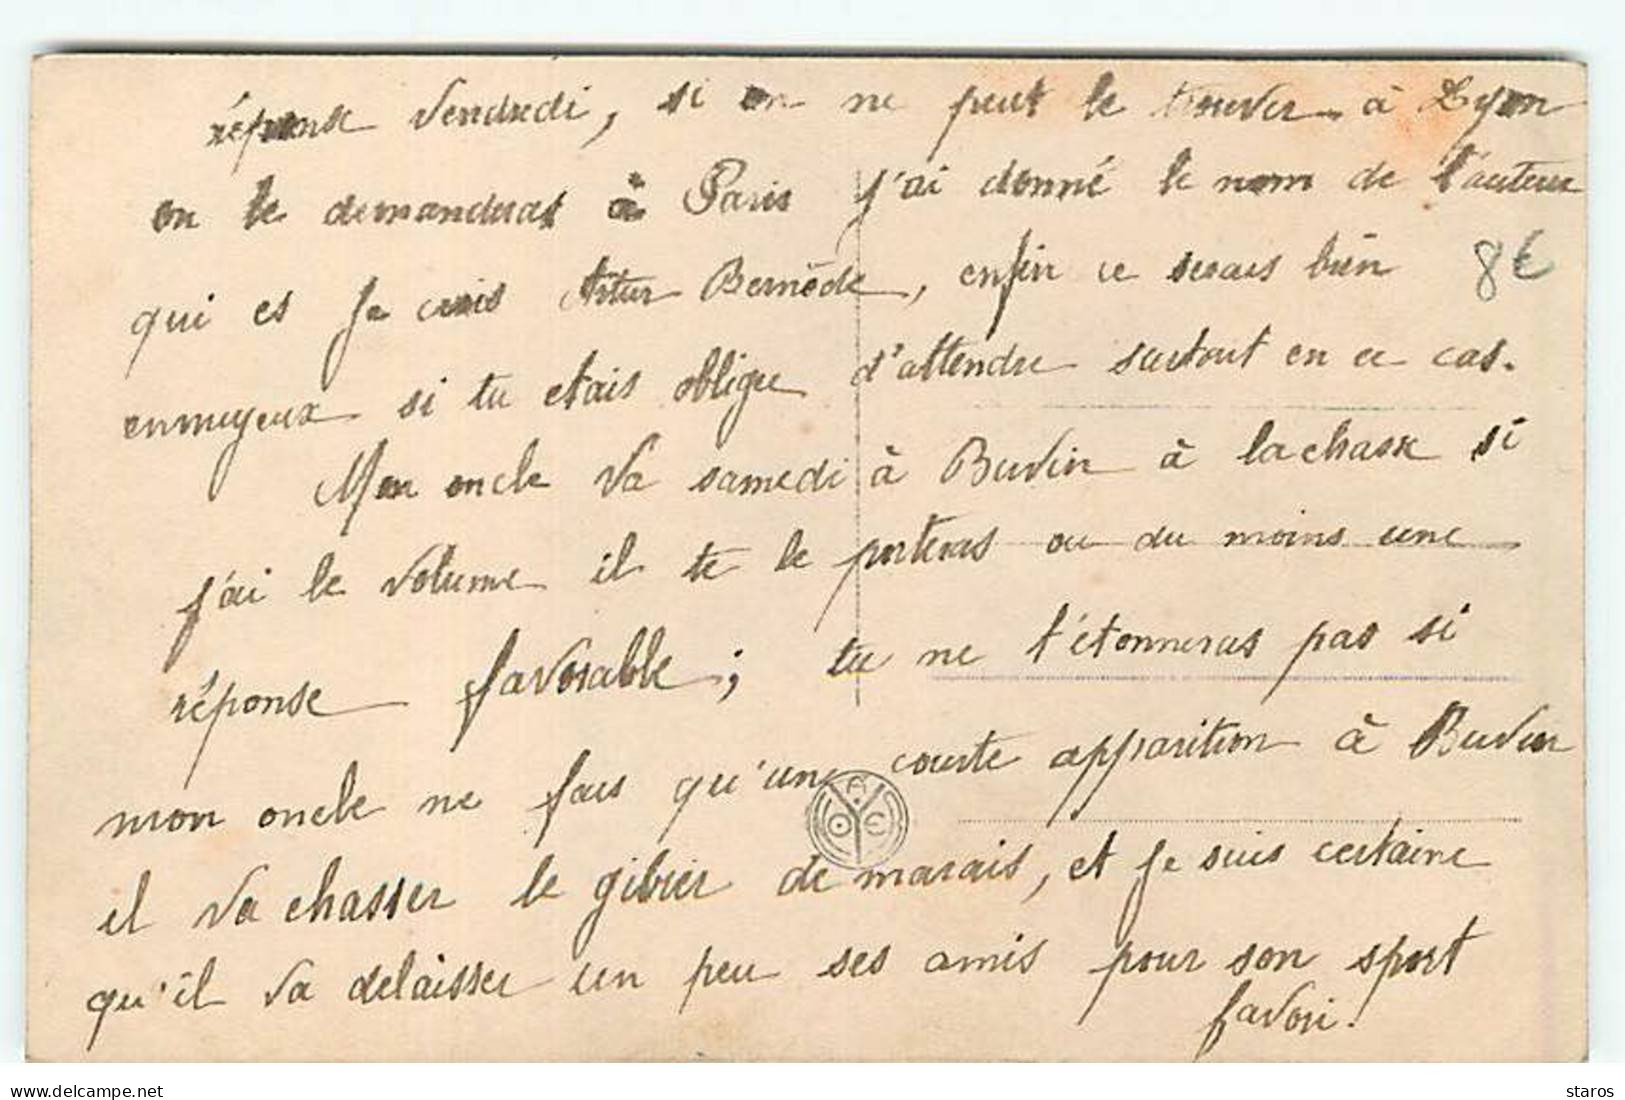 réponse vendredi, si on ne peut le trouver à Lyon
on le demanderas à Paris j'ai donné le nom de l'auteur
qui es je crois Artur Bernède, enfin ce serais bien
8€
ennuyeux si tu etais obligee d'attendre surtout en ce cas.
Mon oncle va samedi à Buvin à la chasse si
j'ai le volume il te le porteras ou du moins une
réponse favorable; tu ne t'étonneras pas si
mon oncle ne fais qu'une courte apparition à Buvin
il va chasser le gibier de marais, et je suis certaine
qu'il va delaisser un peu ses amis pour son sport
favori.
delcampe.net
staros